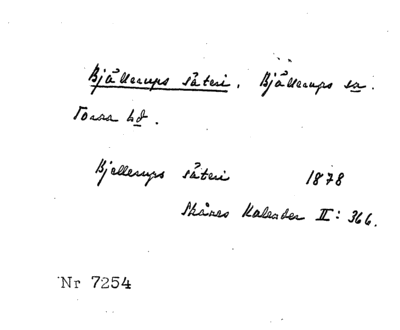 Bjällerups säteri. Bjällerups sn.
Torna hd.
Bjellerups säteri 1878
Skånes Kalender II: 366.
Nr 7254